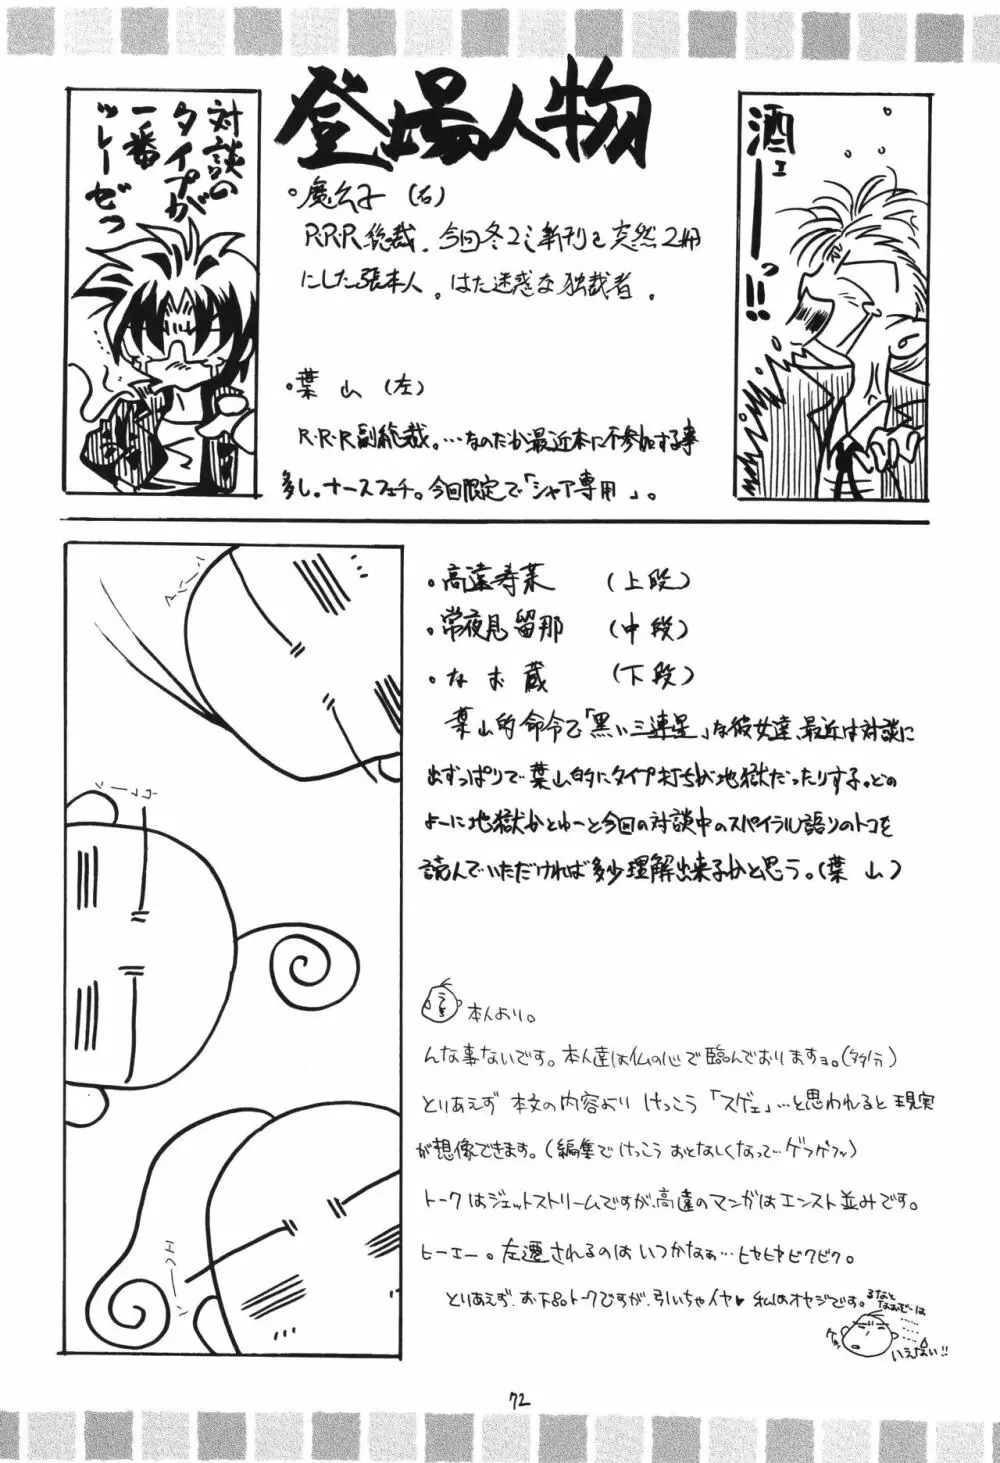 登場人物
酒ェーーーっ!!
・魔公子(右)
R.R.R総裁。今回冬コミ新刊を突然2冊
にした張本人。はた迷惑な独裁者。
対談の
タイプが
一番
ツレーぜっ
・葉山(左)
R・R・R副総裁。…なのだが最近本に不参加する事
多し。ナースフェチ。今回限定で「シャア専用」。
・高遠寿葉 (上段)
・常夜見留那 (中段)
・なお蔵 (下段)
葉山的命令で「黒い三連星」な彼女達、最近は対談に
出ずっぱりで葉山的にタイプ打ちが地獄だったりする。どの
よーに地獄かとゆーと今回の対談中のスパイラル語りのトコを
読んでいただければ多少理解出来るかと思う。(葉山)
本人より。
んな事ないです。本人達は仏の心で臨んでおりますョ。(多分)
とりあえず 本文の内容より けっこう 「スゲェ」…と思われると 現実
が想像できます。(編集で けっこう おとなしくなって…ゲフゲフッ)
トークはジェットストリームですが、高遠のマンガはエンスト並みです。
ヒーエー。左遷されるのは いつかなぁ… ヒヤヒヤビクビク。
とりあえず、お下品トークですが、引いちゃイヤ♥ 私はオヤジです。
るなと
なおぞーは
……
いえない!!
72